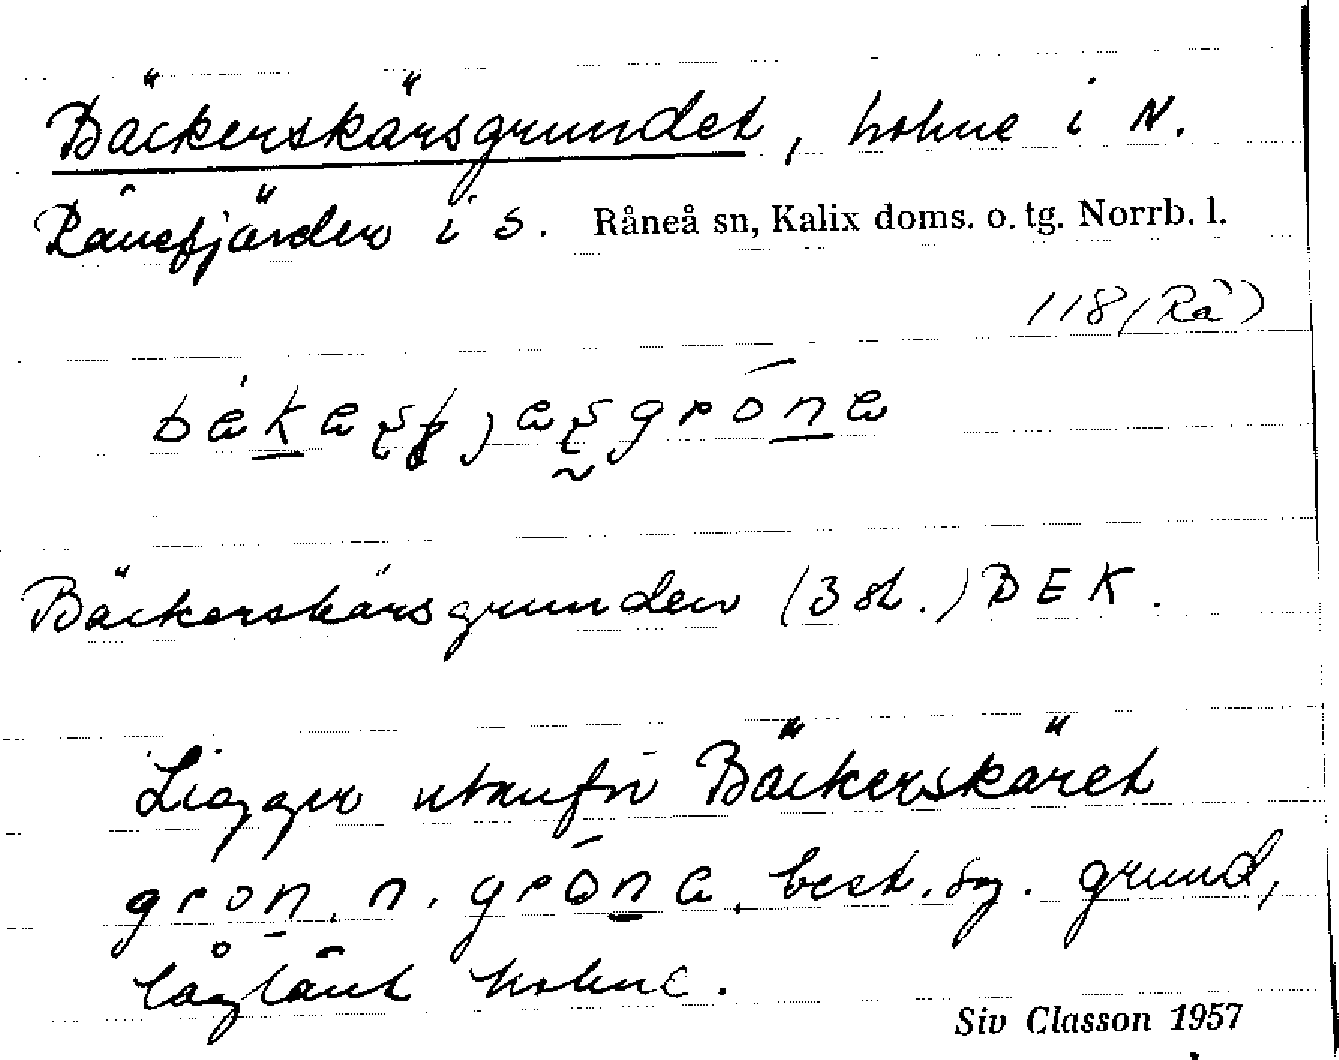 Bäckerskärsgrundet, holme i N.
Rånefjärden i s. Råneå sn, Kalix doms. o. tg. Norrb. l.
118 (Rå)
Bäckerskärsgrunden (3 st.) BEK.
Ligger utanför Bäckerskäret
best. sg. grund,
låglänt holme.
Siv Classon 1957